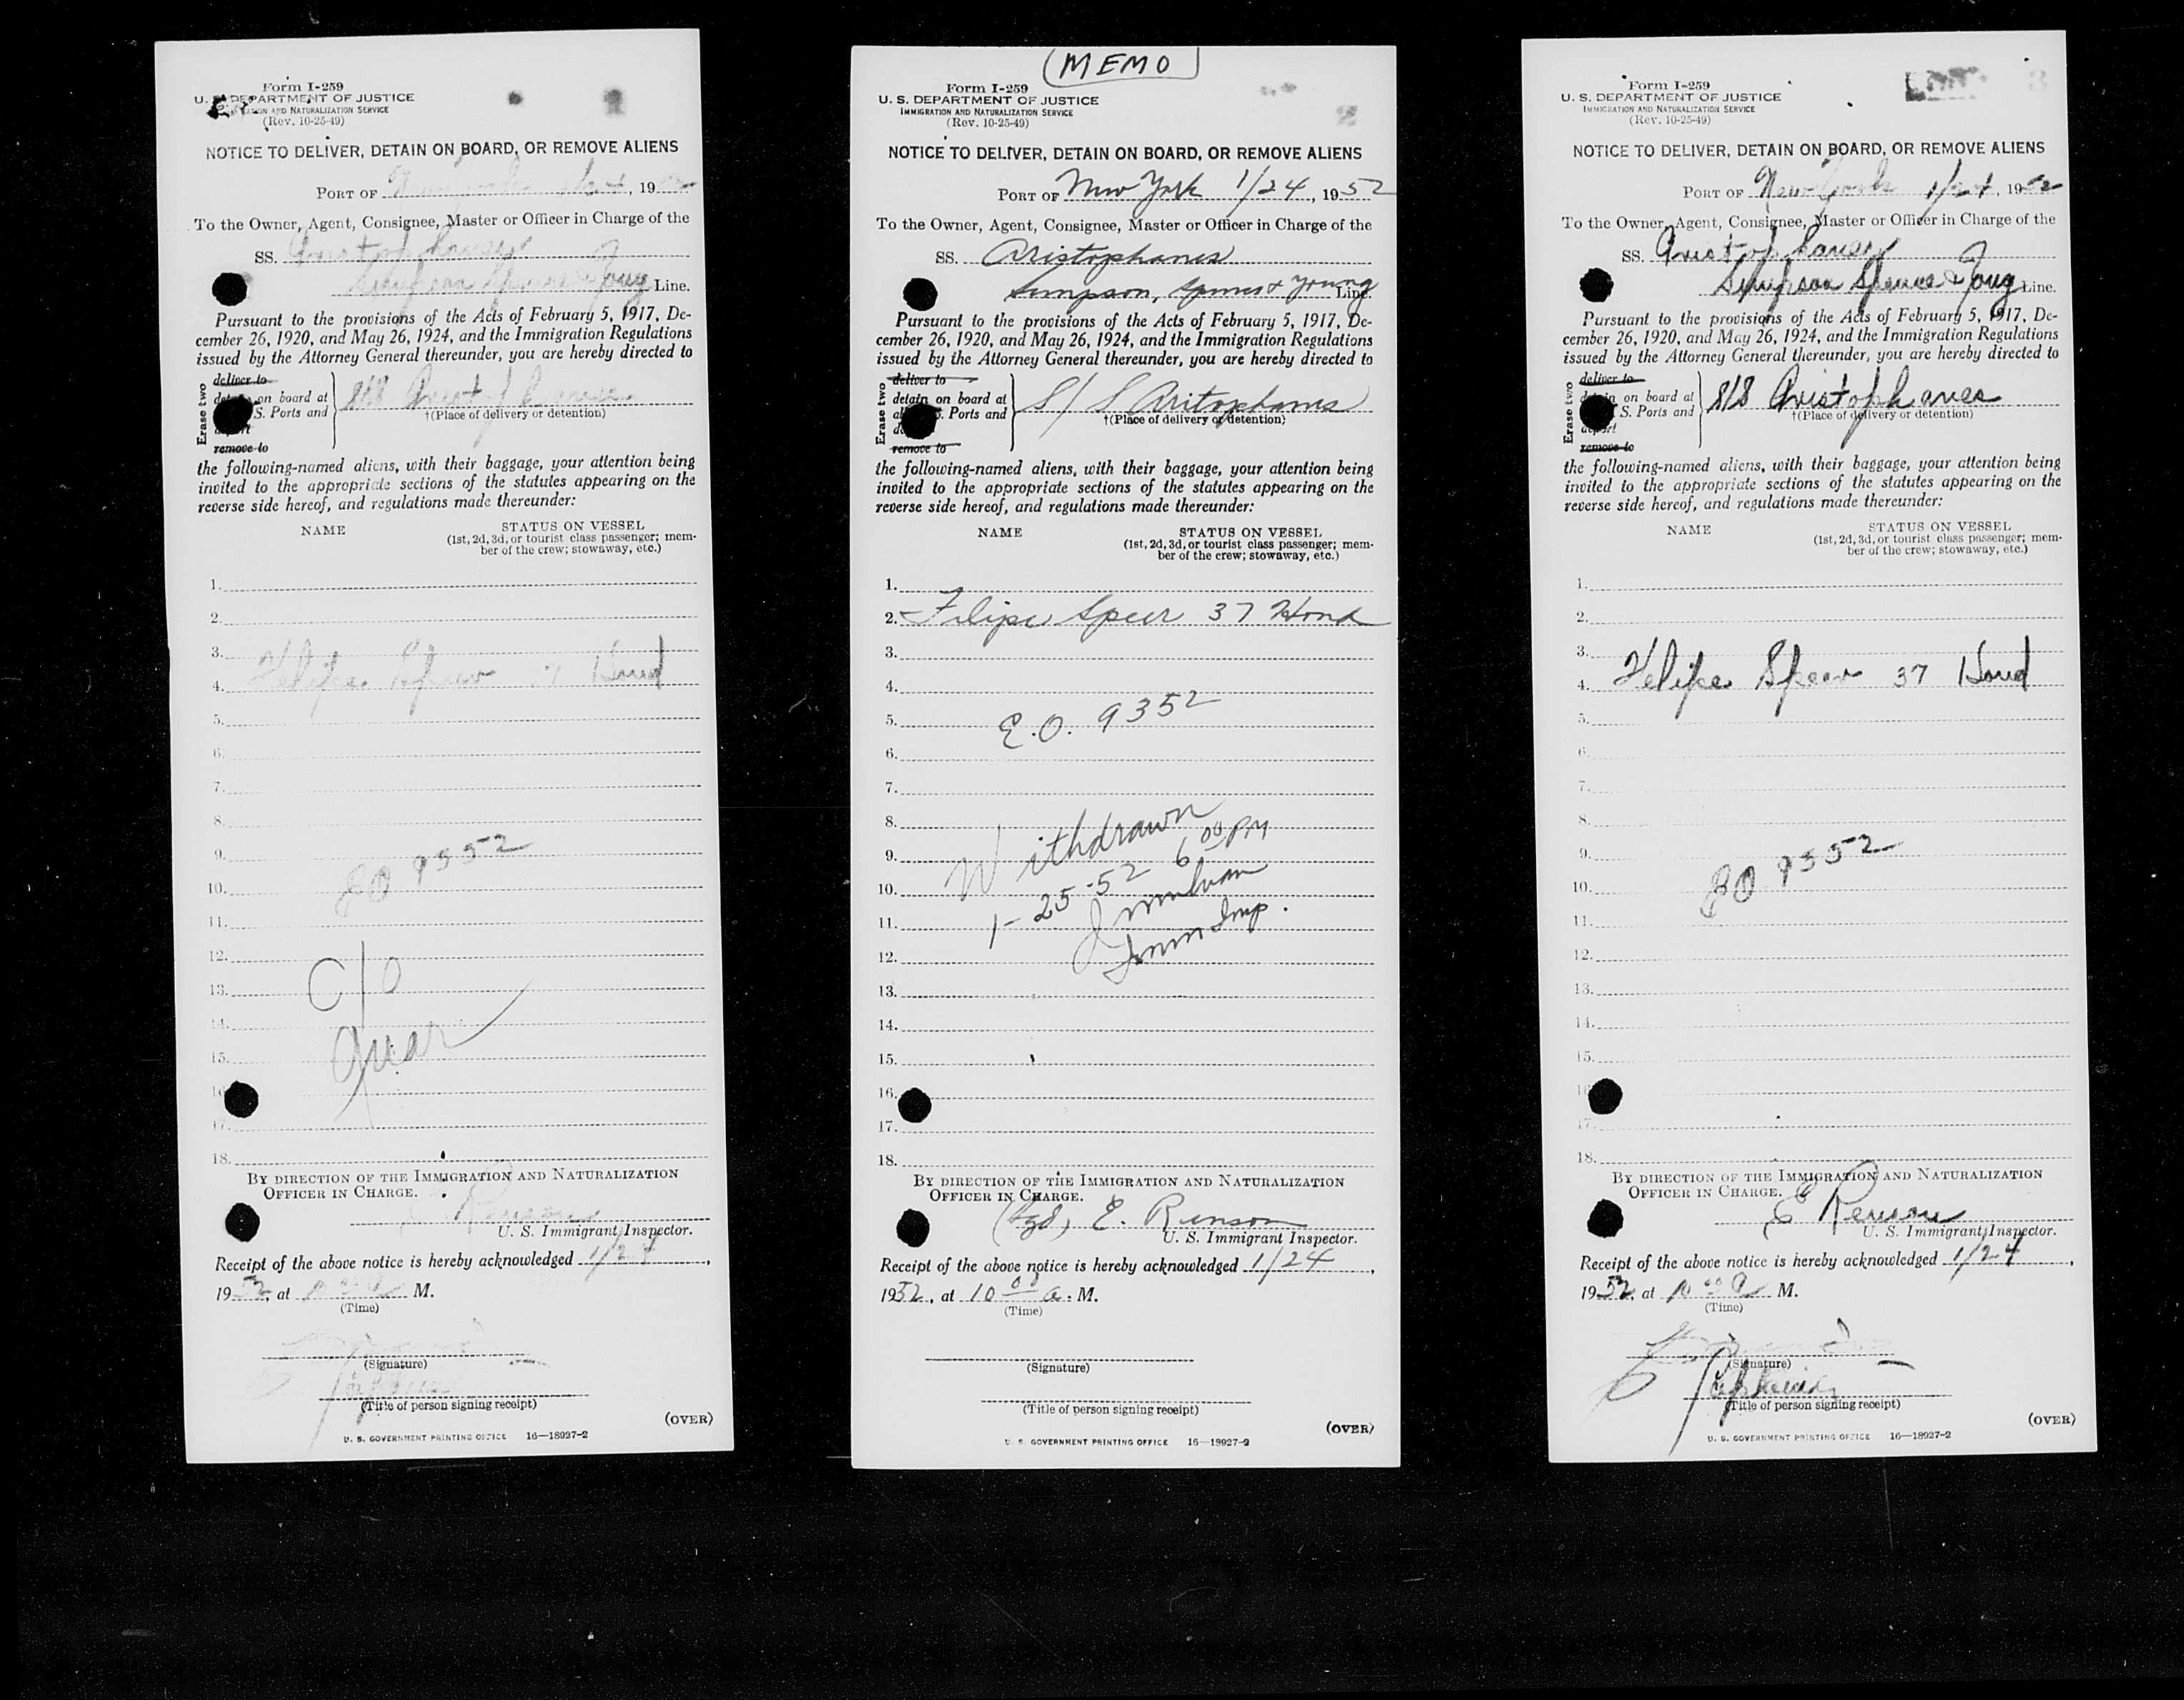 Form I-259
U. S. DEPARTMENT OF JUSTICE
IMMIGRATION AND NATURALIZATION SERVICE
(Rev. 10-25-49)
NOTICE TO DELIVER, DETAIN ON BOARD, OR REMOVE ALIENS
PORT OF New York 1/24, 1952
To the Owner, Agent, Consignee, Master or Officer in Charge of the
SS. Aristophanes
Simpson Spence & Young Line.
Pursuant to the provisions of the Acts of February 5, 1917, De-
cember 26, 1920, and May 26, 1924, and the Immigration Regulations
issued by the Attorney General thereunder, you are hereby directed to
Erase two
deliver to
on board at
S. Ports and
remove to
S/S Aristophanes
†(Place of delivery or detention)
the following-named aliens, with their baggage, your attention being
invited to the appropriate sections of the statutes appearing on the
reverse side hereof, and regulations made thereunder:
NAME
STATUS ON VESSEL
(1st, 2d, 3d, or tourist class passenger; mem-
ber of the crew; stowaway, etc.)
1.
2.
3.
4. Felipe Spear 37 Hond
5.
6.
7.
8.
9.
EO 9352
10.
11.
12.
13. C/O
14.
15. Quar
16
17.
18.
BY DIRECTION OF THE IMMIGRATION AND NATURALIZATION
OFFICER IN CHARGE.
U. S. Immigrant Inspector.
Receipt of the above notice is hereby acknowledged 1/24,
1952, at 10 00 a M.
(Time)
(Signature)
(Title of person signing receipt)
(OVER)
U. S. GOVERNMENT PRINTING OFFICE 16—18927-2
(MEMO)
Form I-259
U. S. DEPARTMENT OF JUSTICE
IMMIGRATION AND NATURALIZATION SERVICE
(Rev. 10-25-49)
NOTICE TO DELIVER, DETAIN ON BOARD, OR REMOVE ALIENS
PORT OF New York 1/24, 1952
To the Owner, Agent, Consignee, Master or Officer in Charge of the
SS. Aristophanes
Simpson, Spence & Young Line.
Pursuant to the provisions of the Acts of February 5, 1917, De-
cember 26, 1920, and May 26, 1924, and the Immigration Regulations
issued by the Attorney General thereunder, you are hereby directed to
Erase two
deliver to
detain on board at
Ports and
remove to
S/S Aritophanes
†(Place of delivery or detention)
the following-named aliens, with their baggage, your attention being
invited to the appropriate sections of the statutes appearing on the
reverse side hereof, and regulations made thereunder:
NAME
STATUS ON VESSEL
(1st, 2d, 3d, or tourist class passenger; mem-
ber of the crew; stowaway, etc.)
1.
2. Filipe Speer 37 Hond
3.
4.
5. E.O. 9352
6.
7.
8.
9. Withdrawn
10. 1-25-52 6 00 PM
11.
Imm Insp.
12.
13.
14.
15.
16.
17.
18.
BY DIRECTION OF THE IMMIGRATION AND NATURALIZATION
OFFICER IN CHARGE.
(Sgd) E. Renson
U. S. Immigrant Inspector.
Receipt of the above notice is hereby acknowledged 1/24,
1952, at 10 00 a. M.
(Time)
(Signature)
(Title of person signing receipt)
(OVER)
U. S. GOVERNMENT PRINTING OFFICE 16—18927-2
Form I-259
U. S. DEPARTMENT OF JUSTICE
IMMIGRATION AND NATURALIZATION SERVICE
(Rev. 10-25-49)
3
NOTICE TO DELIVER, DETAIN ON BOARD, OR REMOVE ALIENS
PORT OF New York 1/24, 1952
To the Owner, Agent, Consignee, Master or Officer in Charge of the
SS. Aristophanes
Simpson Spence & Young Line.
Pursuant to the provisions of the Acts of February 5, 1917, De-
cember 26, 1920, and May 26, 1924, and the Immigration Regulations
issued by the Attorney General thereunder, you are hereby directed to
Erase two
deliver to
on board at
S. Ports and
remove to
S/S Aristophanes
†(Place of delivery or detention)
the following-named aliens, with their baggage, your attention being
invited to the appropriate sections of the statutes appearing on the
reverse side hereof, and regulations made thereunder:
NAME
STATUS ON VESSEL
(1st, 2d, 3d, or tourist class passenger; mem-
ber of the crew; stowaway, etc.)
1.
2.
3.
4. Felipe Spear 37 Hond
5.
6.
7.
8.
9.
EO 9352
10.
11.
12.
13.
14.
15.
16
17.
18.
BY DIRECTION OF THE IMMIGRATION AND NATURALIZATION
OFFICER IN CHARGE.
E Renson
U. S. Immigrant Inspector.
Receipt of the above notice is hereby acknowledged 1/24,
1952, at 10 00 a M.
(Time)
(Signature)
(Title of person signing receipt)
(OVER)
U. S. GOVERNMENT PRINTING OFFICE 16—18927-2